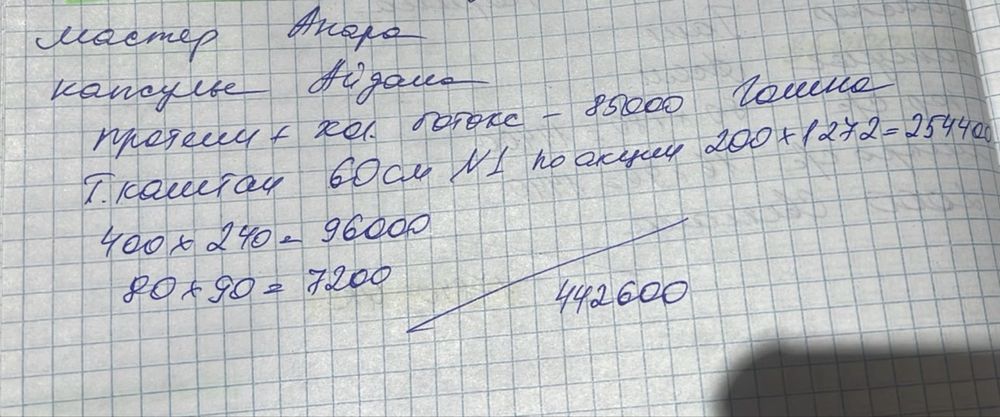 мастер Анара
капсулы Айдана
протеин + хол. ботокс - 85000 Галина
Т. каштан 60 см N1 по акции 200 x 1272 = 254400
400 x 240 = 96000
80 x 90 = 7200
442600